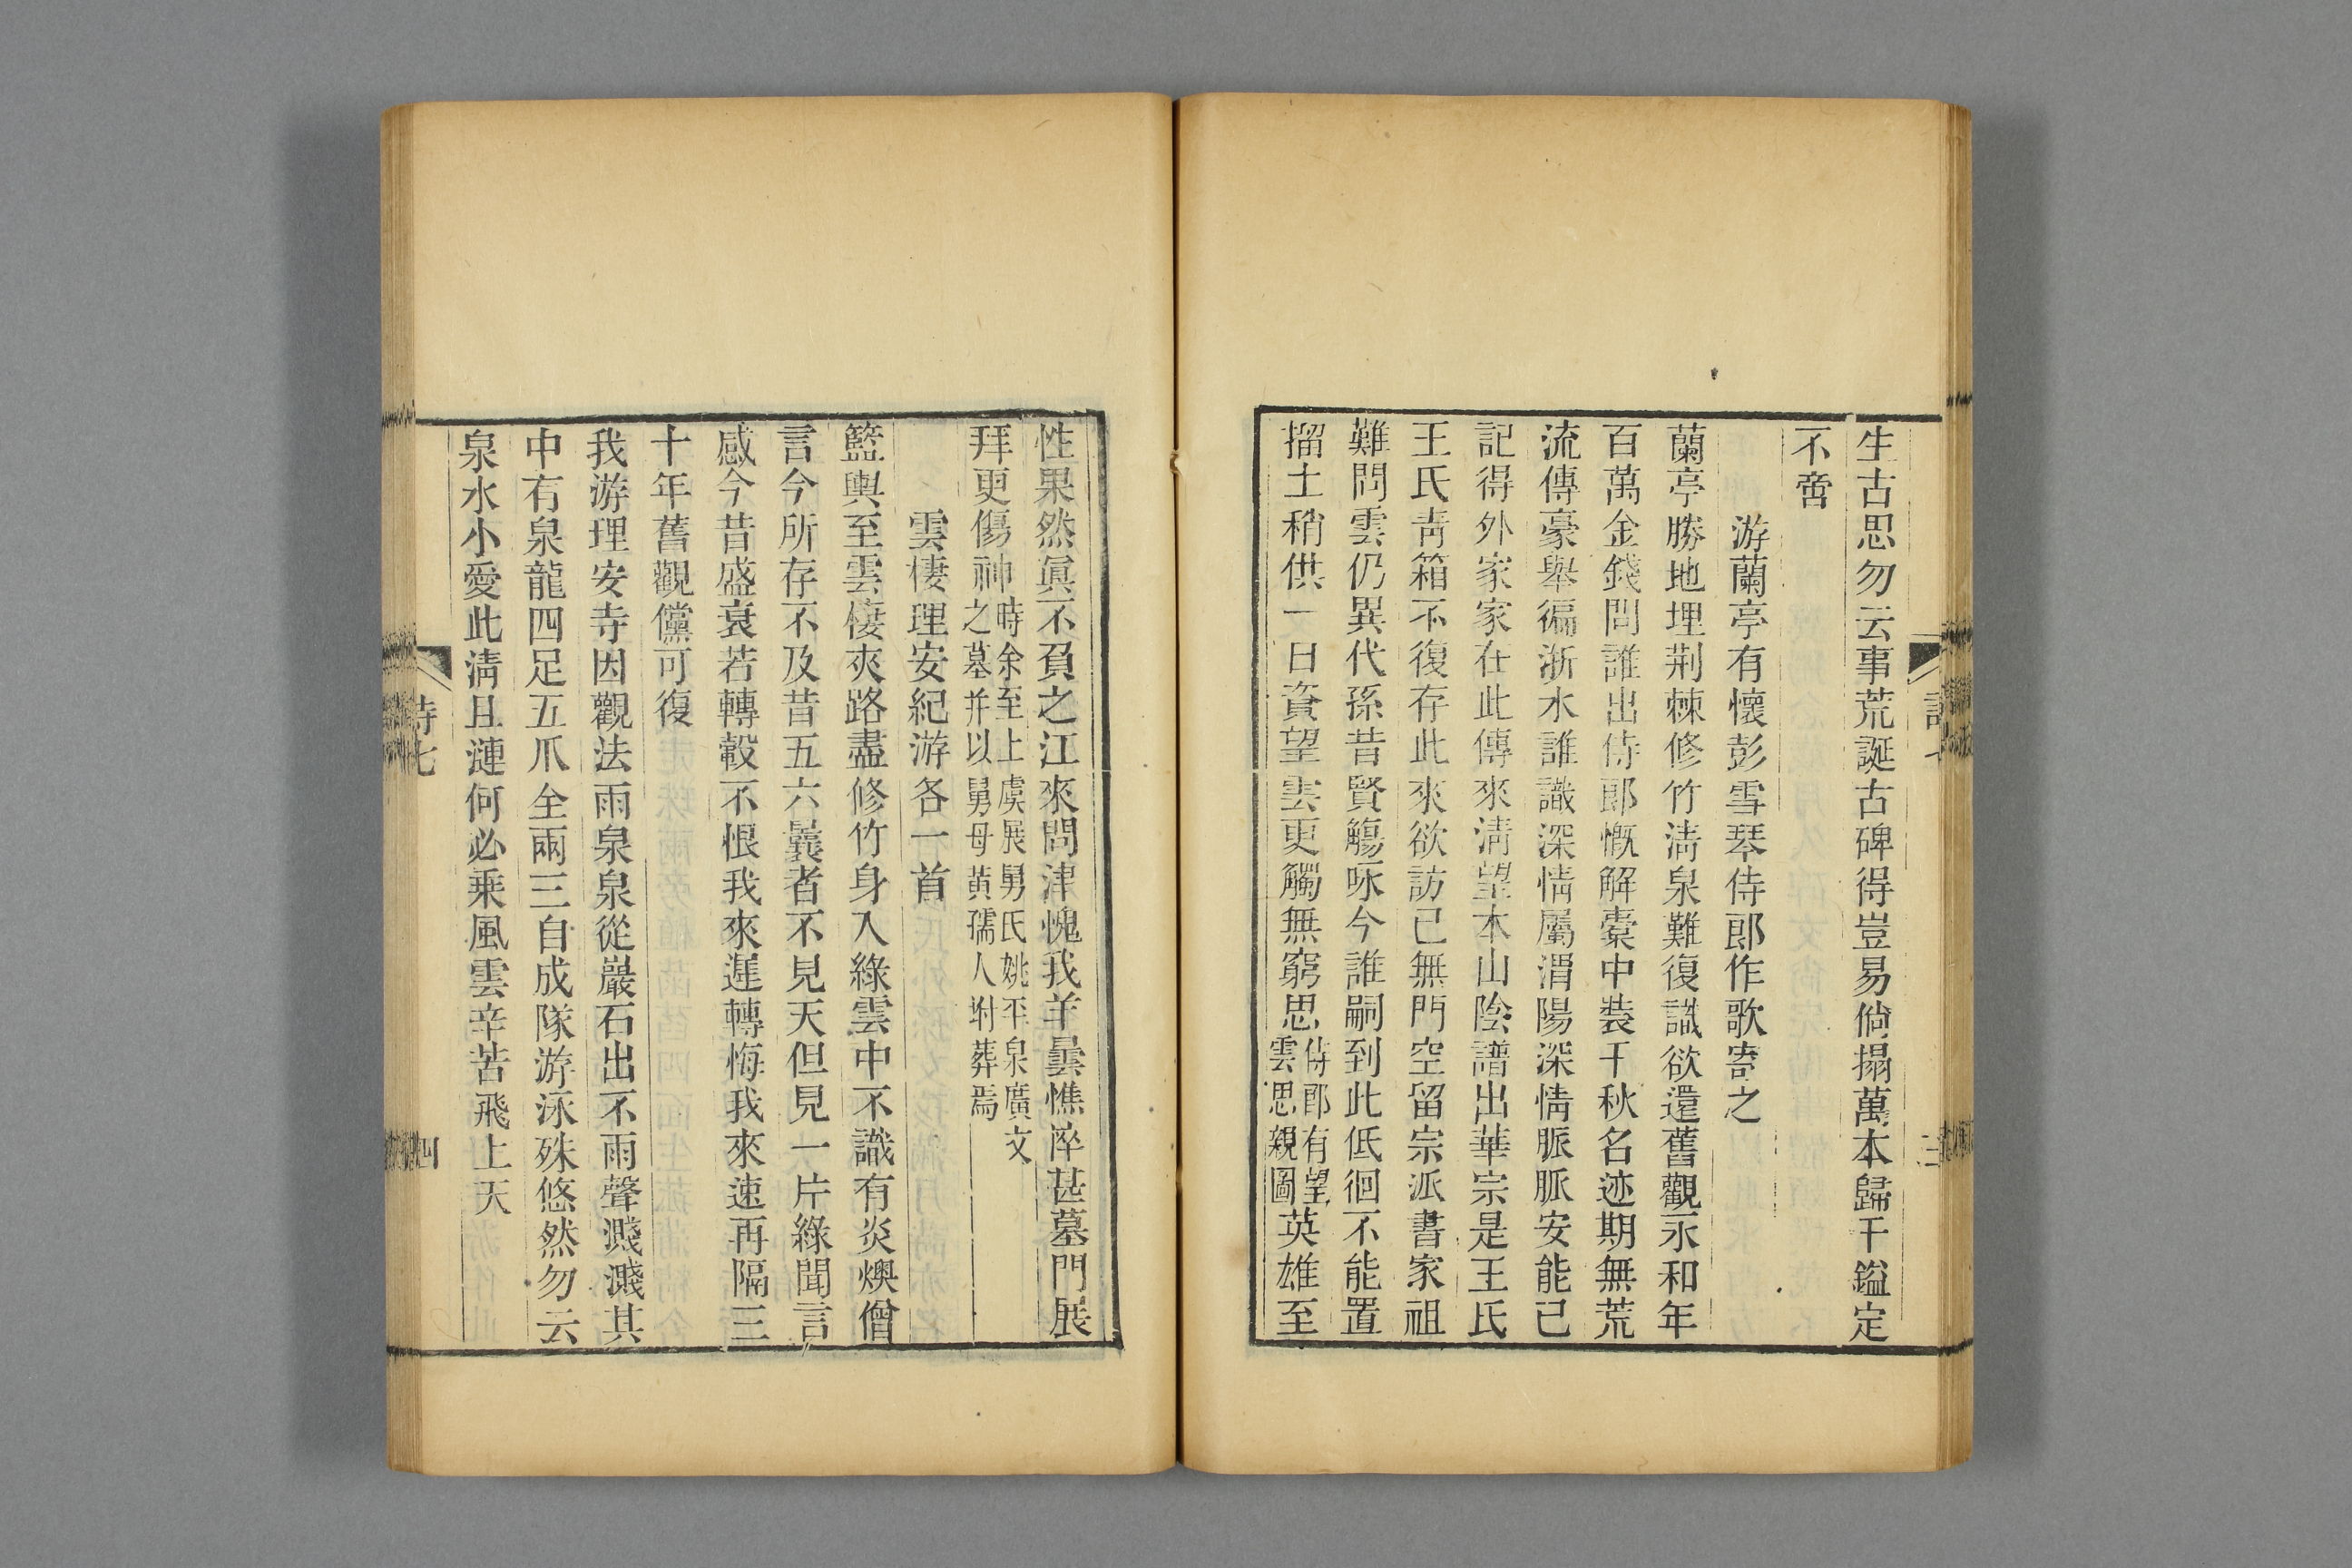 生古思勿云事荒誕古碑得豈易倘搨萬本歸千鎰定
不啻
游蘭亭有懷彭雪琴侍郎作歌寄之
蘭亭勝地埋荆棘修竹淸泉難復識欲還舊觀永和年
百萬金錢問誰出侍郎慨解橐中裝千秋名迹期無荒
流傳豪舉徧浙水誰識深情屬渭陽深情脈脈安能已
記得外家家在此傳來淸望本山陰譜出華宗是王氏
王氏靑箱不復存此來欲訪已無門空留宗派書家祖
難問雲仍異代孫昔賢觴咏今誰嗣到此低徊不能置
㩅土稍供一日資望雲更觸無窮思侍郎有望雲思親圖英雄至
性果然眞不負之江來問津愧我羊曇憔悴甚墓門展
拜更傷神時余至上虞展舅氏姚平泉廣文之墓并以舅母黃孺人坿葬焉
雲棲理安紀游各一首
籃輿至雲棲夾路盡修竹身入綠雲中不識有炎燠僧
言今所存不及昔五六曩者不見天但見一片綠聞言
感今昔盛衰若轉轂不恨我來遲轉悔我來速再隔三
十年舊觀儻可復
我游理安寺因觀法雨泉泉從巖石出不雨聲濺濺其
中有泉龍四足五爪全兩三自成隊游泳殊悠然勿云
泉水小愛此淸且漣何必乘風雲辛苦飛上天
詩七
四